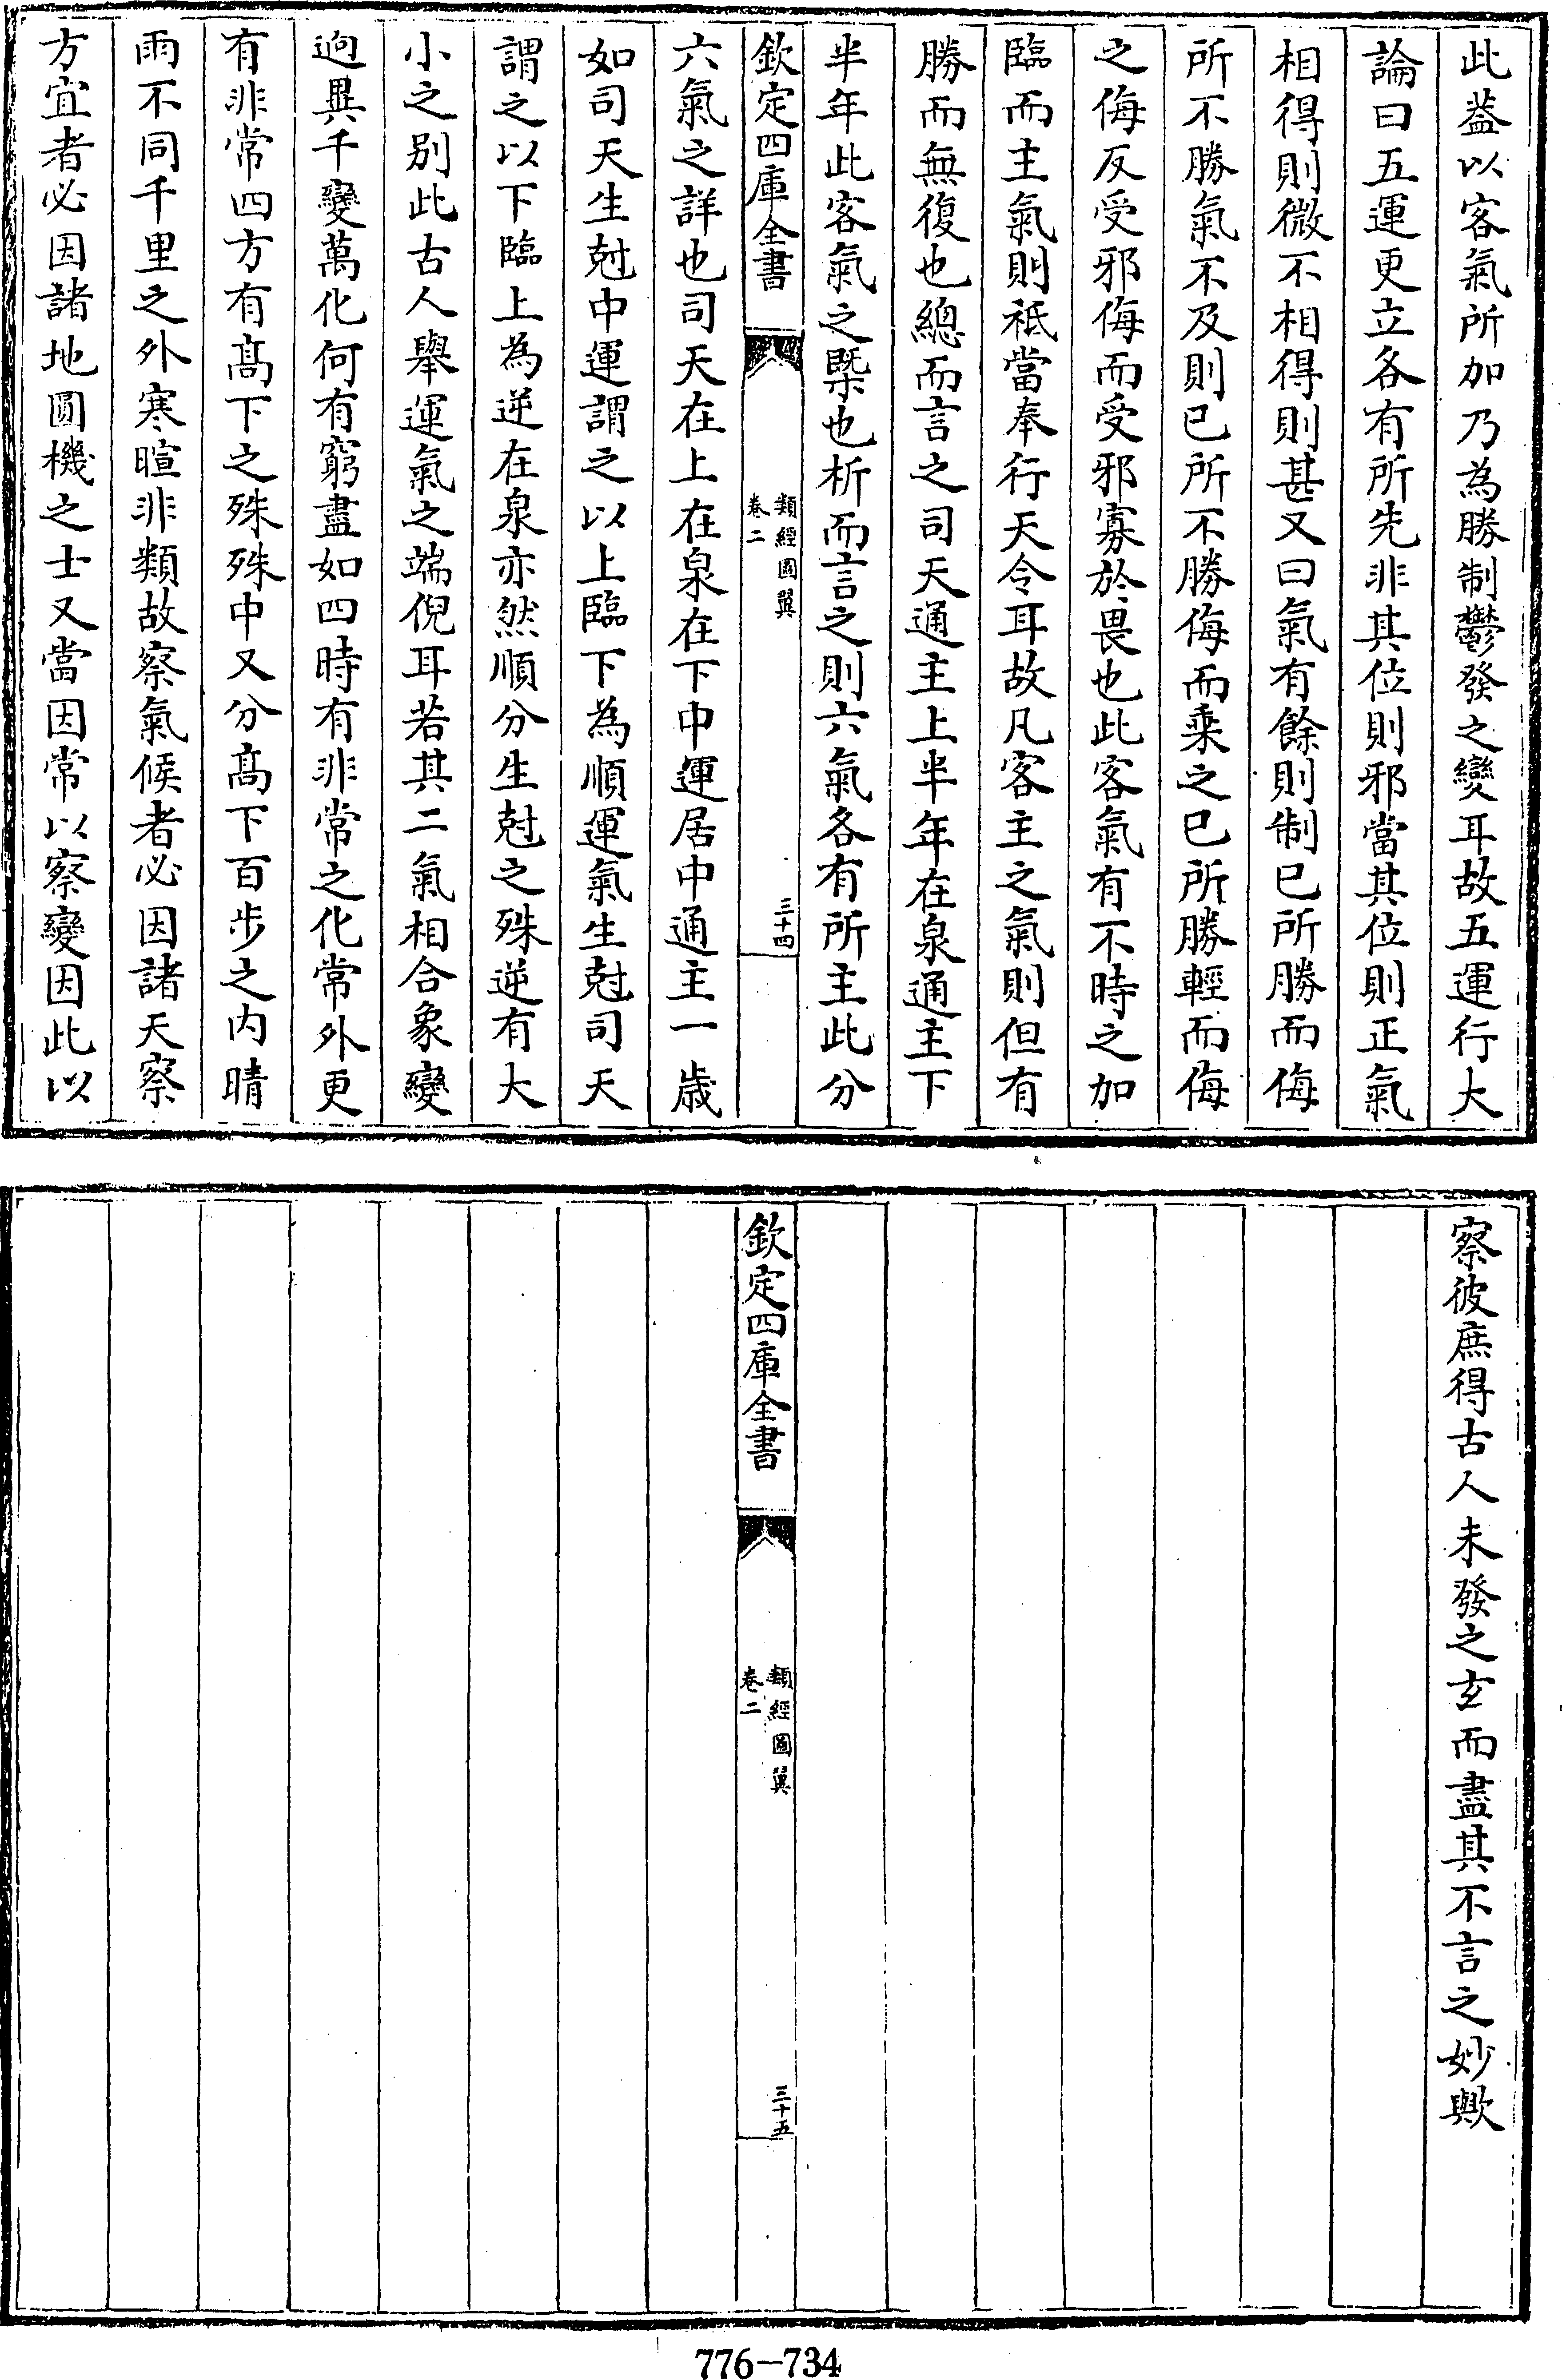 此葢以客氣所加乃為勝制鬱發之變耳故五運行大
論曰五運更立各有所先非其位則邪當其位則正氣
相得則微不相得則甚又曰氣有餘則制已所勝而侮
所不勝氣不及則已所不勝侮而乘之已所勝輕而侮
之侮反受邪侮而受邪寡於畏也此客氣有不時之加
臨而主氣則祗當奉行天令耳故凡客主之氣則但有
勝而無復也總而言之司天通主上半年在泉通主下
半年此客氣之槩也析而言之則六氣各有所主此分
欽定四庫全書
類經圖翼
卷二
三十四
六氣之詳也司天在上在泉在下中運居中通主一歲
如司天生尅中運謂之以上臨下為順運氣生尅司天
謂之以下臨上為逆在泉亦然順分生尅之殊逆有大
小之別此古人舉運氣之端倪耳若其二氣相合象變
逈異千變萬化何有窮盡如四時有非常之化常外更
有非常四方有髙下之殊殊中又分髙下百步之内晴
雨不同千里之外寒暄非類故察氣候者必因諸天察
方宜者必因諸地圓機之士又當因常以察變因此以
察彼庶得古人未發之玄而盡其不言之妙歟
欽定四庫全書
類經圖翼
卷二
三十五
776-734